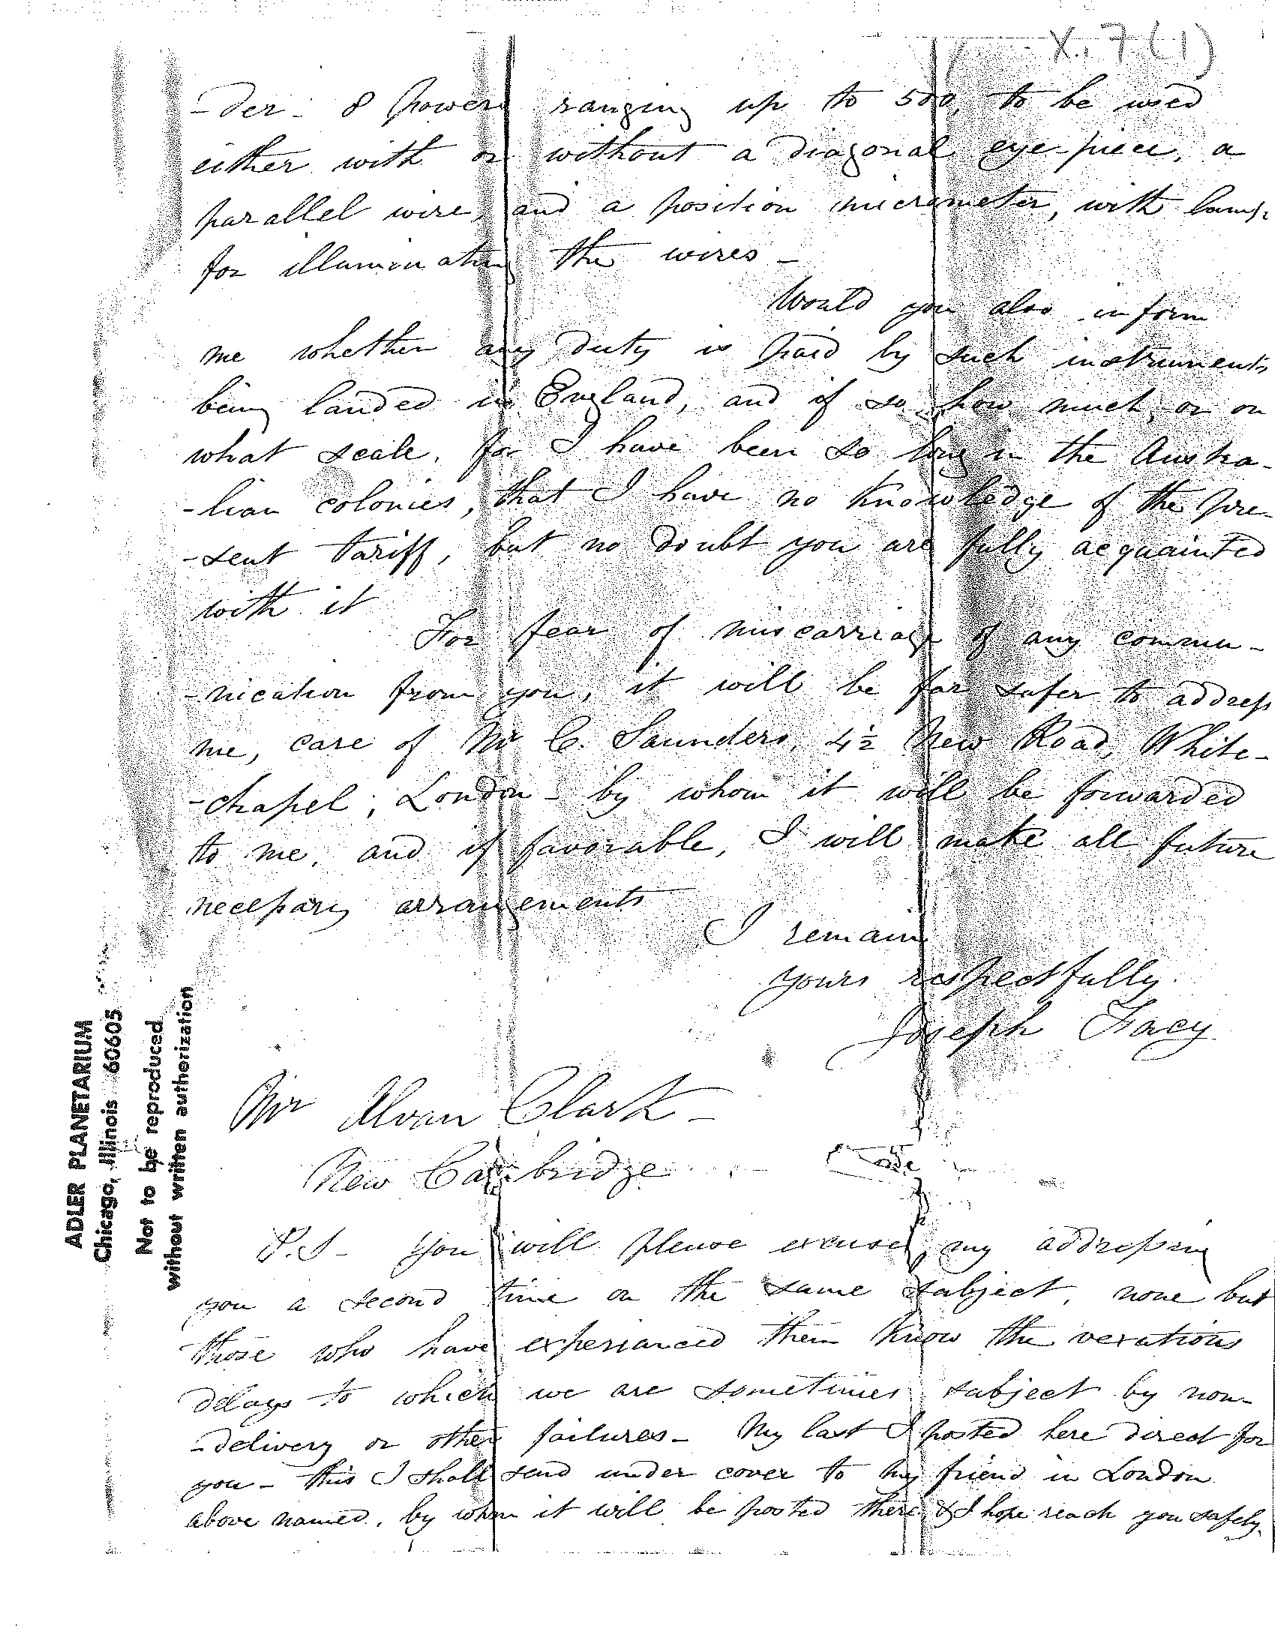 X. 7 (1)
-der - 8 powers ranging up to 500, to be used
either with or without a diagonal eye-piece, a
parallel wire, and a position micrometer, with lamp
for illuminating the wires -
Would you also inform
me whether any duty is paid by such instruments
being landed in England, and if so how much, or on
what scale, for I have been so long in the Austra-
-lian colonies, that I have no knowledge of the pre-
-sent tariff, but no doubt you are fully acquainted
with it
For fear of miscarriage of any commu-
-nication from you, it will be far safer to address
me, care of Mr C. Saunders, 4½ New Road, White-
-chapel, London - by whom it will be forwarded
to me, and if favorable, I will make all future
necessary arrangements
I remain
yours respectfully.
Joseph Tracy
Mr Alvan Clark -
New Cambridge
P.S - You will please excuse my addressing
you a second time on the same subject, none but
those who have experianced them know the vexatious
delays to which we are sometimes subject by non-
-delivery or other failures - My last I posted here direct for
you - this I shall send under cover to my friend in London
above named, by whom it will be posted there & I hope reach you safely.
ADLER PLANETARIUM
Chicago, Illinois 60605
Not to be reproduced
without written authorization